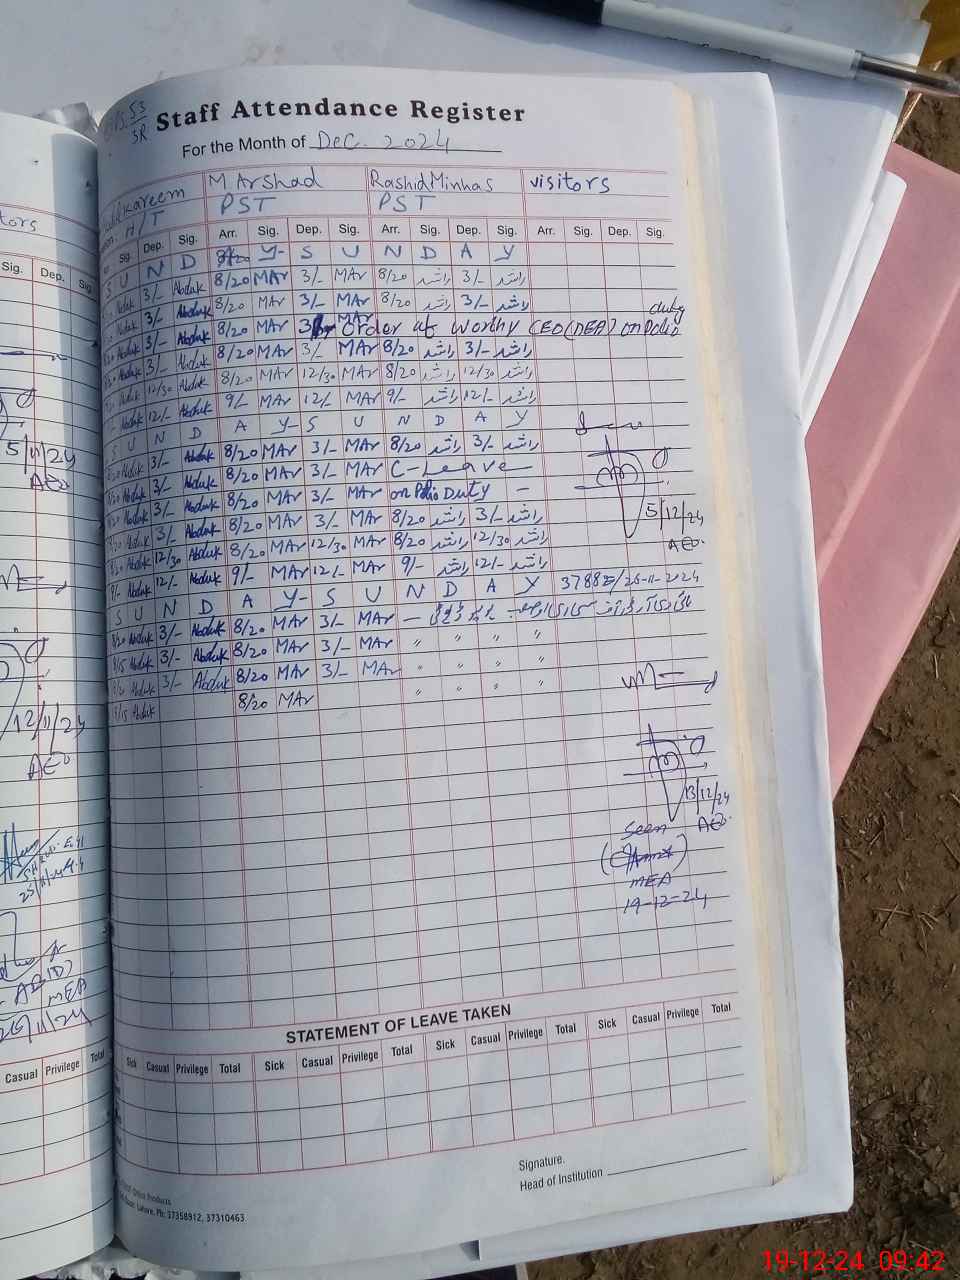 53
SR
Staff Attendance Register
For the Month of Dec. 2024
Kareem M Arshad Rashid Minhas visitors
H/T PST PST
Sig. Dep. Sig. Arr. Sig. Dep. Sig. Arr. Sig. Dep. Sig. Arr. Sig. Dep. Sig.
S U N D A Y S U N D A Y
Abduk 3/- Abduk 8/20 MAr 3/- MAr 8/20 راشد 3/- راشد
Abduk 3/- Abduk 8/20 MAr 3/- MAr 8/20 راشد 3/- راشد
Abduk 3/- Abduk 8/20 MAr 3/- MAr order of worthy CEO(DEA) on Polio duty
Abduk 3/- Abduk 8/20 MAr 3/- MAr 8/20 راشد 3/- راشد
Abduk 12/30 Abduk 8/20 MAr 12/30 MAr 8/20 راشد 12/30 راشد
Abduk 12/- Abduk 9/- MAr 12/- MAr 9/- راشد 12/- راشد
S U N D A Y S U N D A Y
8/20 Abduk 3/- Abduk 8/20 MAr 3/- MAr 8/20 راشد 3/- راشد
8/20 Abduk 3/- Abduk 8/20 MAr 3/- MAr C-Leave
8/20 Abduk 3/- Abduk 8/20 MAr 3/- MAr on Polio Duty -
8/20 Abduk 3/- Abduk 8/20 MAr 3/- MAr 8/20 راشد 3/- راشد
8/20 Abduk 12/30 Abduk 8/20 MAr 12/30 MAr 8/20 راشد 12/30 راشد
9/- Abduk 12/- Abduk 9/- MAr 12/- MAr 9/- راشد 12/- راشد
5/12/24
AEO.
S U N D A Y S U N D A Y 3788 /26-11-2024
8/20 Abduk 3/- Abduk 8/20 MAr 3/- MAr
8/15 Abduk 3/- Abduk 8/20 MAr 3/- MAr " " " "
8/20 Abduk 3/- Abduk 8/20 MAr 3/- MAr " " " "
8/15 Abduk 8/20 MAr " " " "
13/12/24
AEO.
Seen
MEA
19-12-24
STATEMENT OF LEAVE TAKEN
Sick Casual Privilege Total Sick Casual Privilege Total Sick Casual Privilege Total Sick Casual Privilege Total
Signature.
Head of Institution
Products
Lahore, Ph: 37358912, 37310463
tors
Sig. Dep. Sig.
5/11/24
AEO
12/11/24
AEO
MEA
Casual Privilege Total
19-12-24 09:42